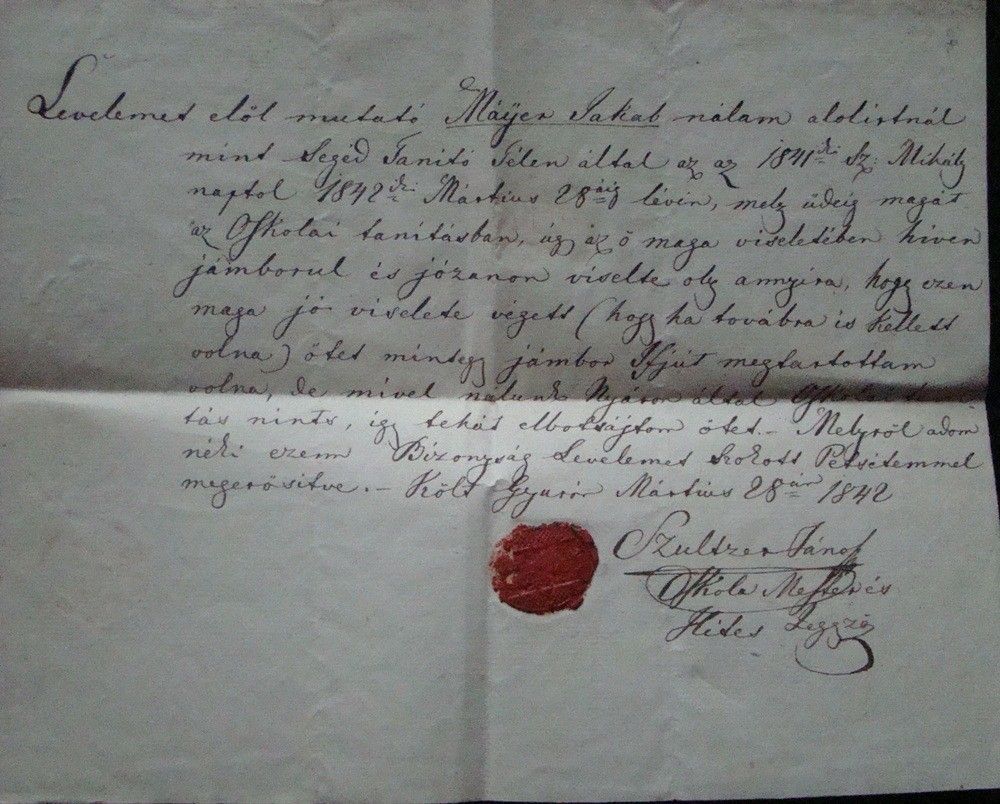 Levelemet elöl mutató Máÿer Jakab nálam alolirtnál
mint Segéd Tanitó Télen által az az 1841dki Sz: Mihály
naptol 1842dki Mártius 28áig lévén, mely üdeig magát
az Oskolai tanitásban, úgy az ő maga viseletében hiven
jámborul és józanon viselte oly annyira, hogy ezen
maga jó viselete végett (hogy ha továbra is kellett
volna) ötet mintegy jámbor Ifjút megtartottam
volna, de mivel nálunk Nyáron által
tás nints, igy tehát elbotsájtom ötet.- Melyröl adom
néki ezenn Bizonyság Levelemet szokott Petsétemmel
megerösitve.- Költ Gyurón Mártius 28án 1842
Szultzer János
Oskola Mester és
Hites Jegyző